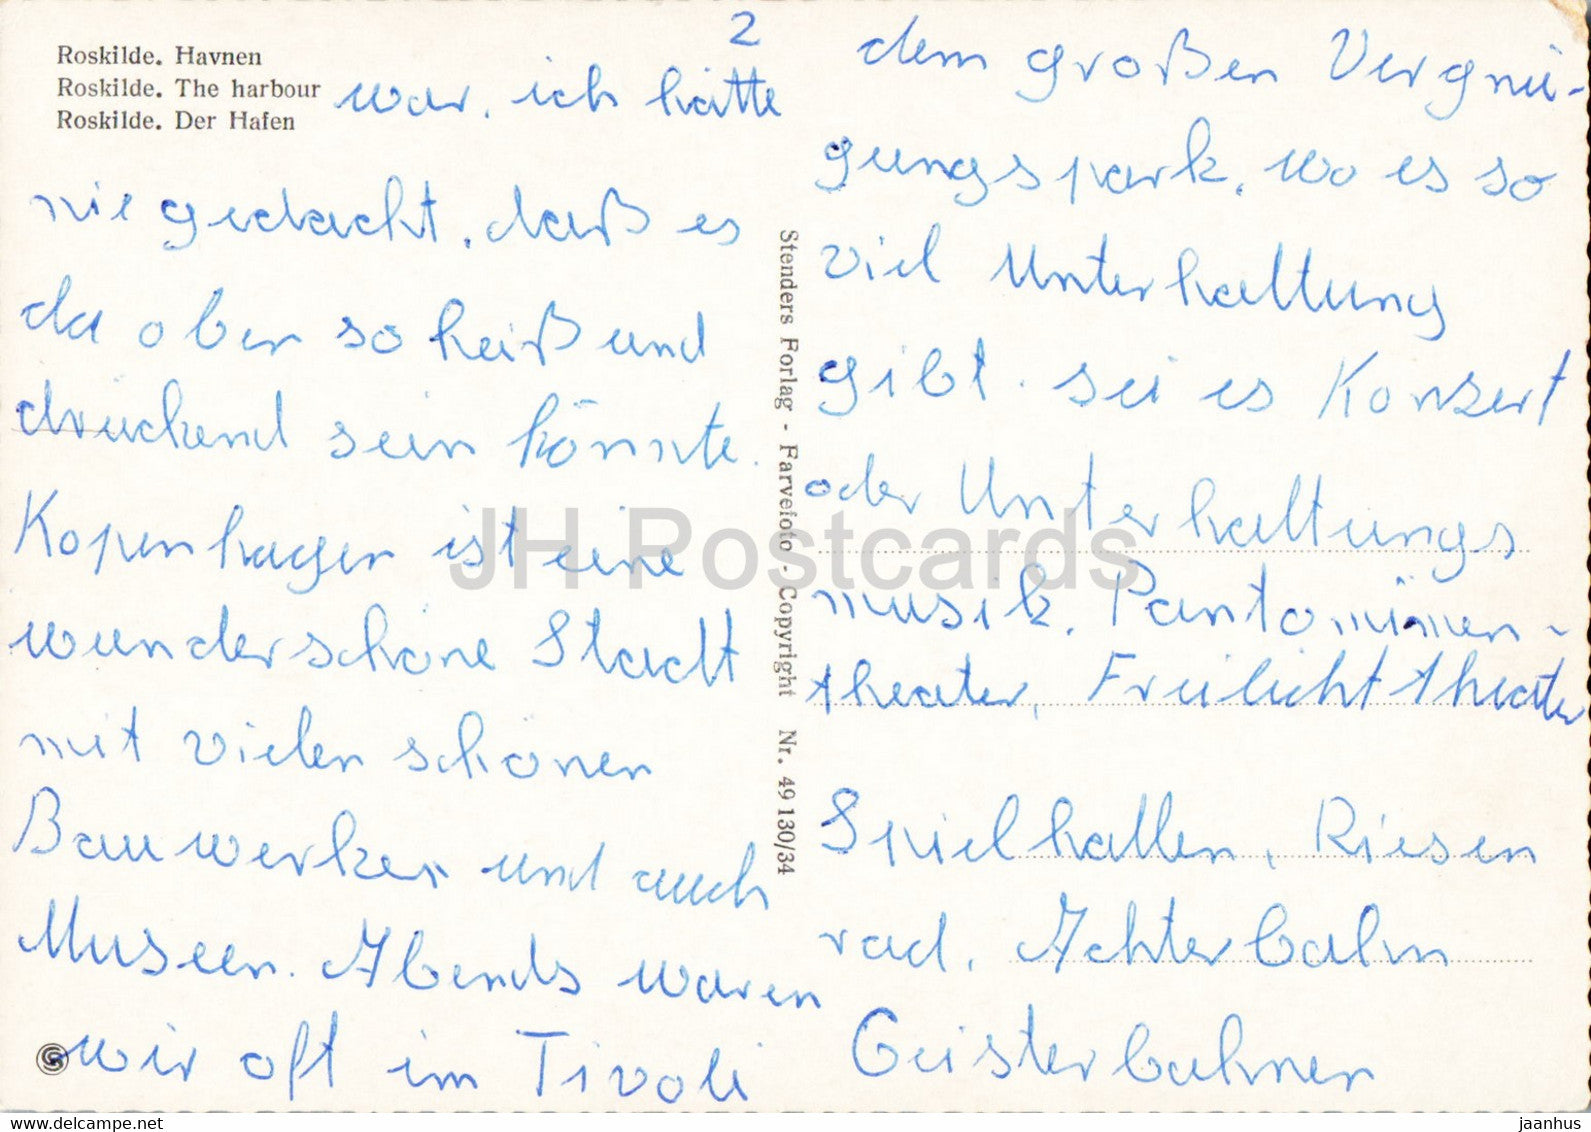 Roskilde. Havnen
Roskilde. The harbour
Roskilde. Der Hafen
2
war, ich hätte
nie gedacht, daß es
da oben so heiß und
drückend sein könnte.
Kopenhagen ist eine
wunderschöne Stadt
mit vielen schönen
Bauwerken und auch
Museen. Abends waren
wir oft im Tivoli
Stenders Forlag - Farvefoto - Copyright Nr. 49 130/34
dem großen Vergnü-
gungspark, wo es so
viel Unterhaltung
gibt. sei es Konzert
oder Unterhaltungs
musik, Pantomimen-
theater, Freilichttheater
Spielhallen, Riesen
rad, Achterbahn
Geisterbahnen
JH Postcards
www.delcampe.net
jaanhus